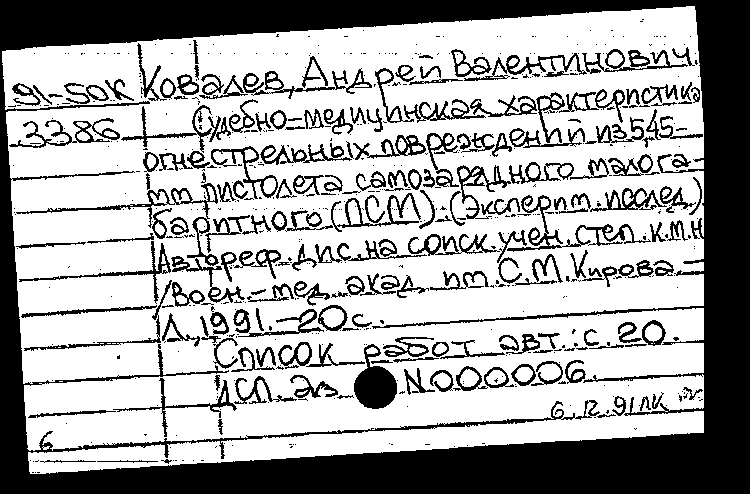 91-50к Ковалев, Андрей Валентинович.
3386 Судебно-медицинская характеристика
огнестрельных повреждений из 5,45-
мм пистолета самозарядного малога-
баритного (ПСМ): (Эксперим. исслед.)
Автореф. дис. на соиск. учен. степ. к.м.н
/Воен.-мед. акад. им. С.М. Кирова.-
Л., 1991.-20с.
Список работ авт.: с. 20.
ДСП. Экз N000006.
6.12.91 ЛК
6